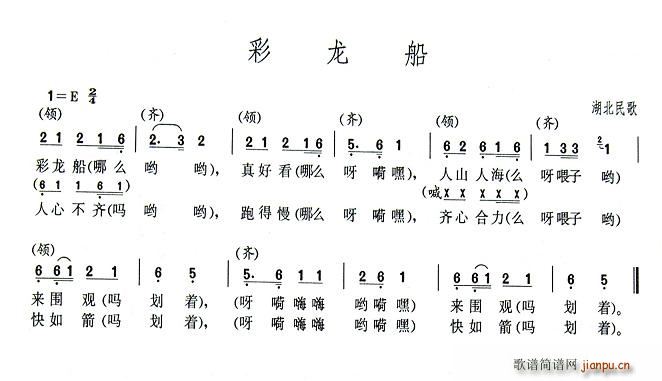 彩 龙 船
1=E 2/4
湖北民歌
(领) (齐) (领) (齐) (领) (齐)
2 1 2 1 6 | 2. 3 2 | 2 1 2 1 6 | 5. 6 1 | 6 2 6 1 6 | 1 3 3 2 1 |
彩龙船(哪么 哟 哟), 真好看(哪么 呀 嗬嘿), 人山人海(么 呀喂子 哟)
(6 1 1 6 1) (喊 X X X X X)
人心不齐(吗 哟 哟), 跑得慢(哪么 呀 嗬嘿), 齐心合力(么 呀喂子 哟)
(领) (齐)
6 6 1 2 1 | 6 5 | 5. 6 1 1 | 2 6 1 | 6 6 1 2 1 | 6 5 ‖
来围观(吗 划 着), (呀 嗬嗨嗨 哟嗬嘿) 来围观(吗 划 着)。
快如箭(吗 划 着), (呀 嗬嗨嗨 哟嗬嘿) 快如箭(吗 划 着)。
歌谱简谱网
jianpu.cn